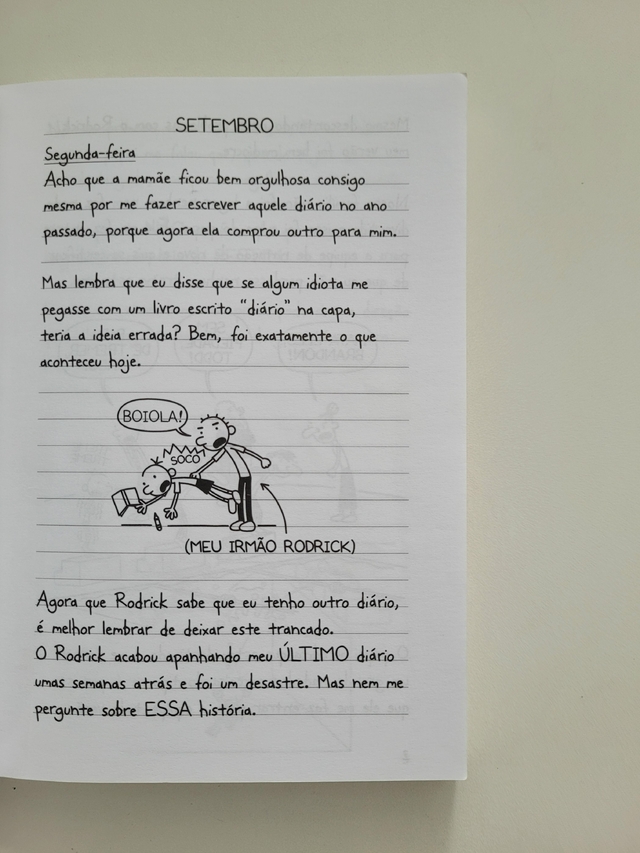 SETEMBRO
Segunda-feira
Acho que a mamãe ficou bem orgulhosa consigo
mesma por me fazer escrever aquele diário no ano
passado, porque agora ela comprou outro para mim.
Mas lembra que eu disse que se algum idiota me
pegasse com um livro escrito “diário” na capa,
teria a ideia errada? Bem, foi exatamente o que
aconteceu hoje.
BOIOLA!
SOCO
(MEU IRMÃO RODRICK)
Agora que Rodrick sabe que eu tenho outro diário,
é melhor lembrar de deixar este trancado.
O Rodrick acabou apanhando meu ÚLTIMO diário
umas semanas atrás e foi um desastre. Mas nem me
pergunte sobre ESSA história.